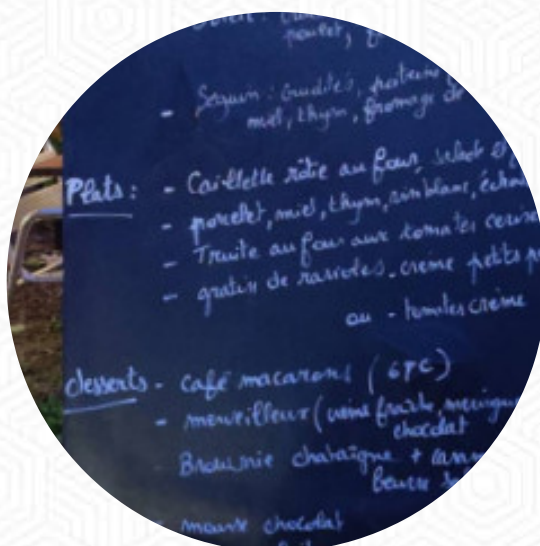 poulet,
- Seguin : crudités,
miel, thym, fromage de
Plats : - Caillette rôtie au four, salade
- porcelet, miel, thym, vin blanc,
- Truite au four aux tomates cerise
- gratin de ravioles. creme petits
ou - tomates creme
desserts - café macarons (6PC)
- merveilleux (creme fraiche, meringue
chocolat
Brownie chataigne +
beurre
- mousse chocolat